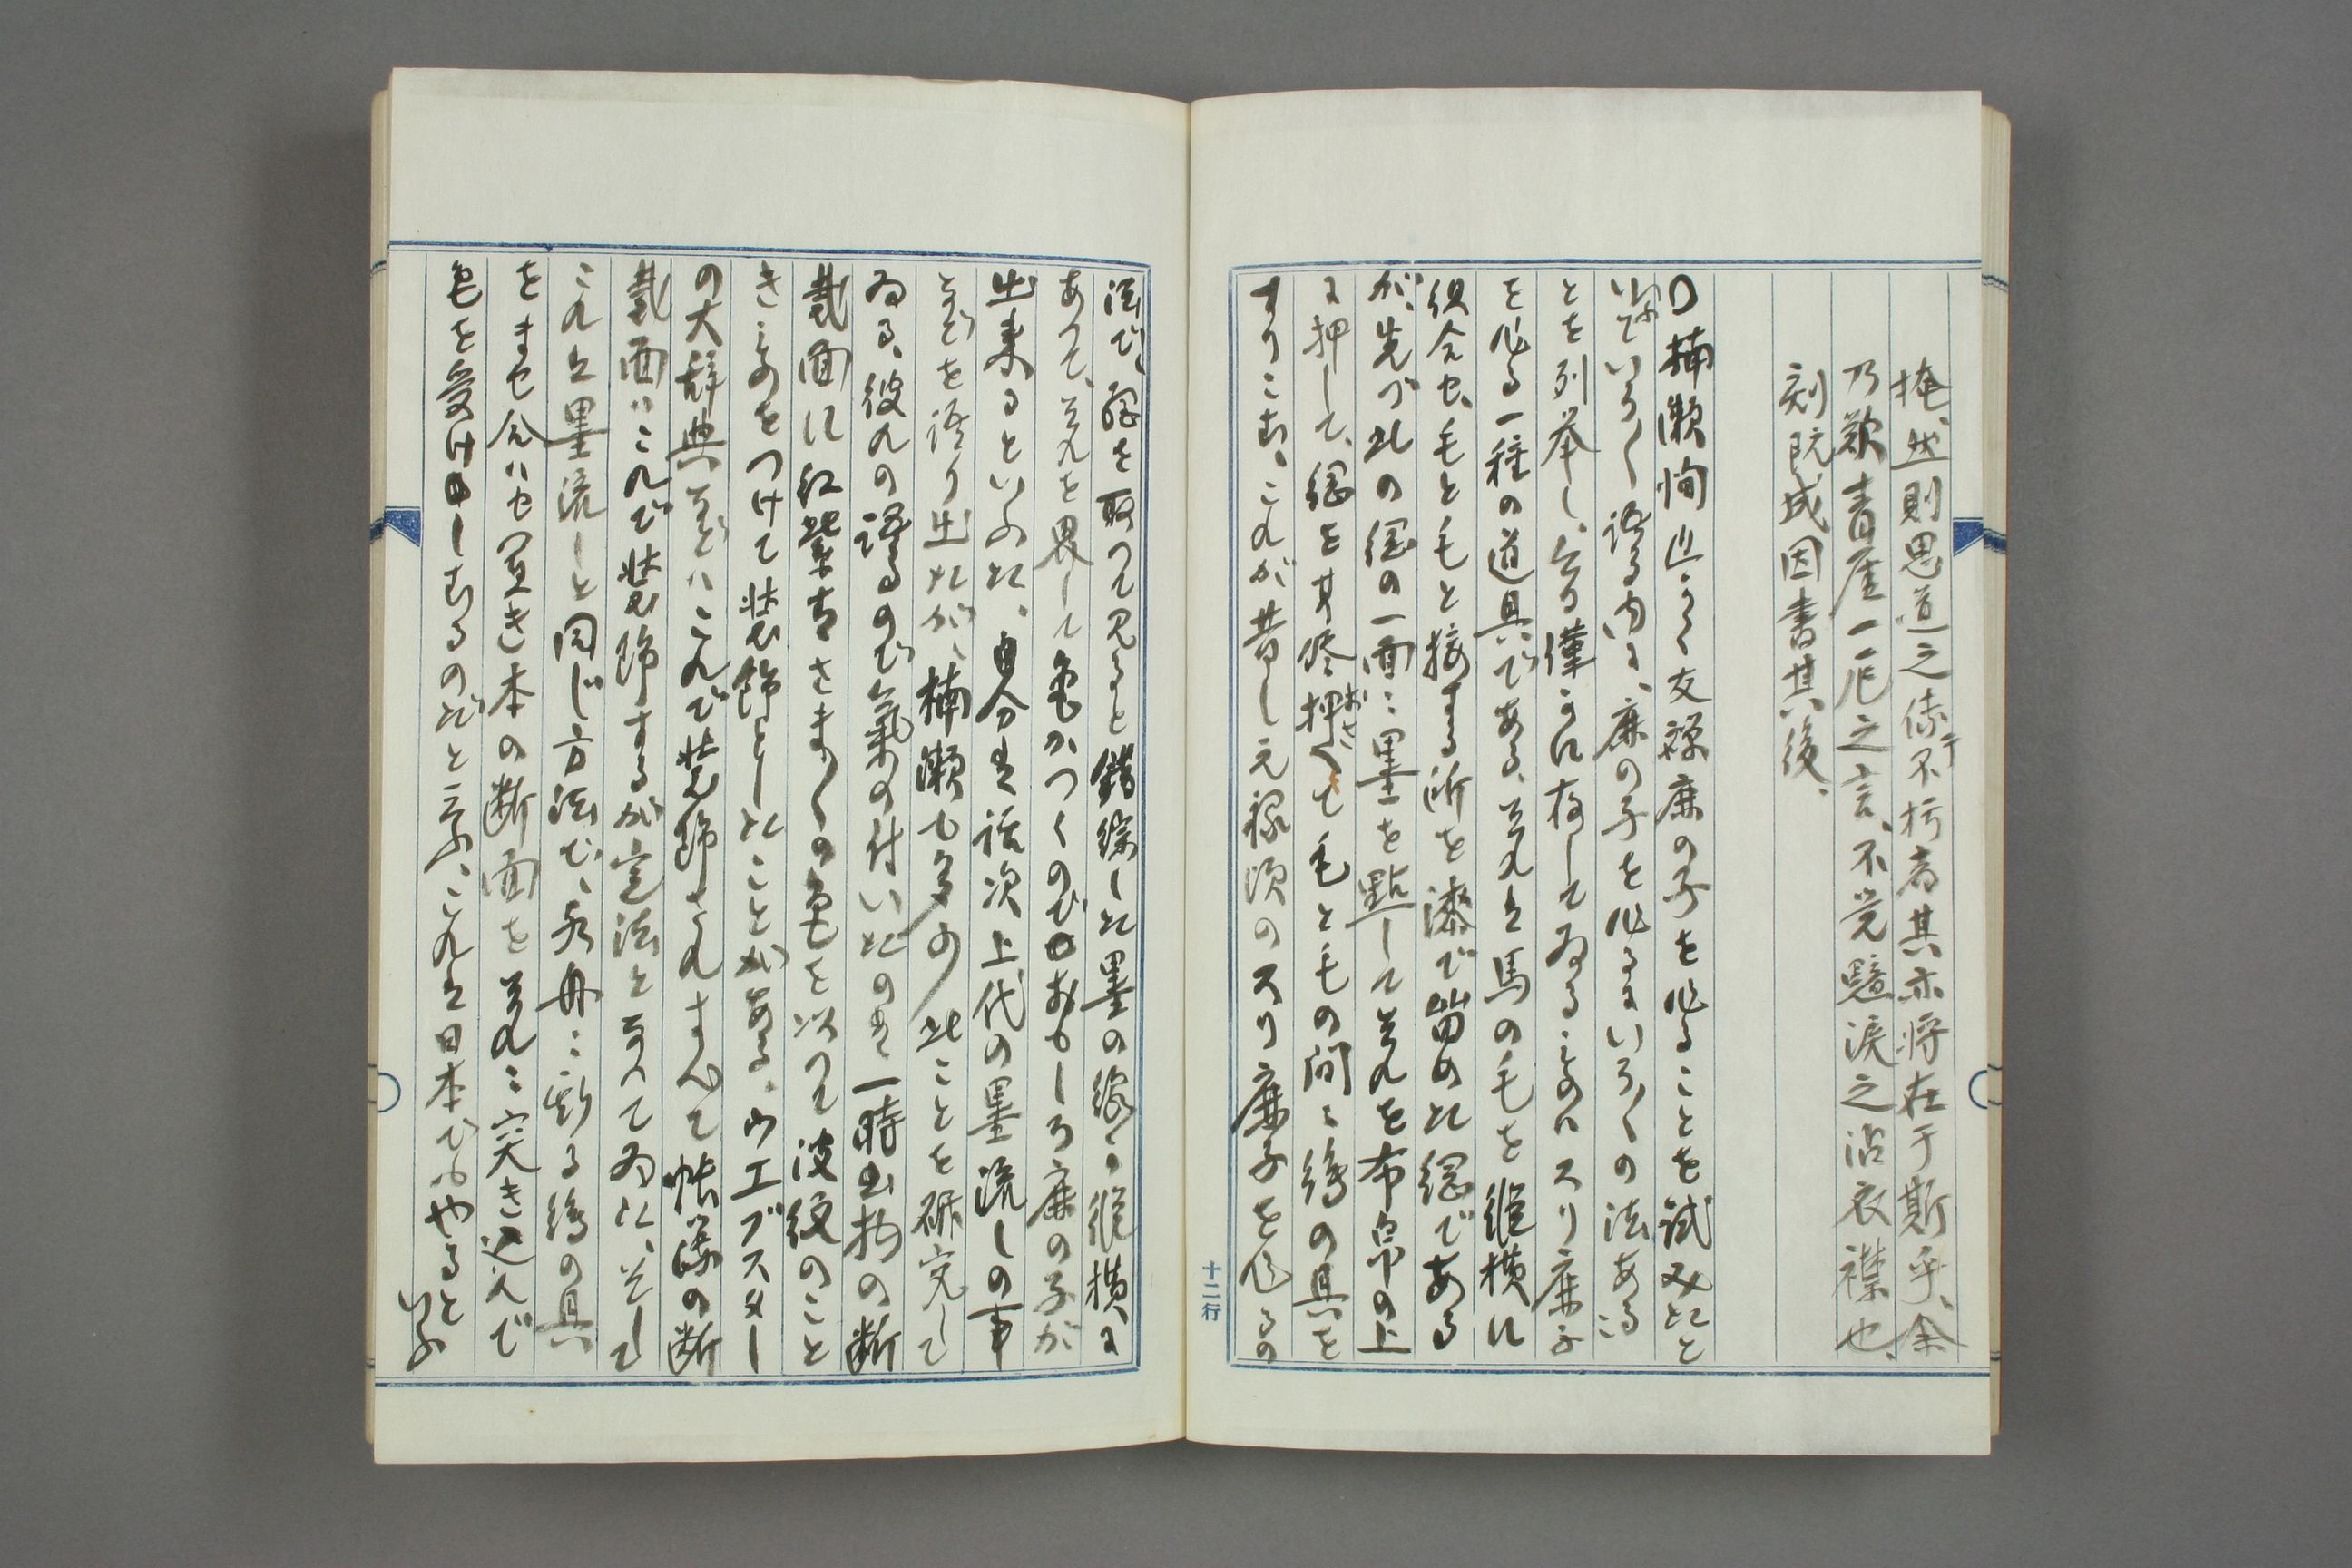 掩、然則思道之係不朽者其亦将在于斯乎、余
乃歎青崖一厄之言、不覚驗涙之沾衣襟也、
刻既成因書其後、
〇楠瀬恂近ころ友禅鹿の子を作ることを試みたと
いふていろ〱語る内に、鹿の子を作るにいろ〱の法ある
とを列挙し、今尚僅かに存してゐるものハスリ鹿子
を作る一種の道具である、それは馬の毛を縦横に
組合せ、毛と毛と接する所を漆で留めた網である
が、先づ此の網の一面に墨を點してそれを布帛の上
に押して、網を其儘押(おさ)へて毛と毛の間に絵の具を
すりこむ、これが昔し元禄頃のスリ鹿子を作るの
法で、網を取つて見ると錯綜した墨の線が縦横に
あつて、それを界して色がつくのでおもしろい鹿の子が
出来るといふた、自分は話次上代の墨流しの事
などを語り出たが、楠瀬も多少此ことを研究して
ゐる、彼れの語るので気の付いたのは一時出おの断
截面に紅紫青さま〲の色を以つて波紋のこと
きものをつけて装飾としたことがある、ウエブスター
の大辞典などハこれで装飾されすべて帳簿の断
截面ハこれで装飾するが定法となつてゐた、そして
これは墨流しと同じ方法で、水舟に斯る絵の具
をまぜ合ハせ置き本の断面をそれに突き込んで
色を受けしむるのだと云ふ、これは日本でもやると
いふ
十二行